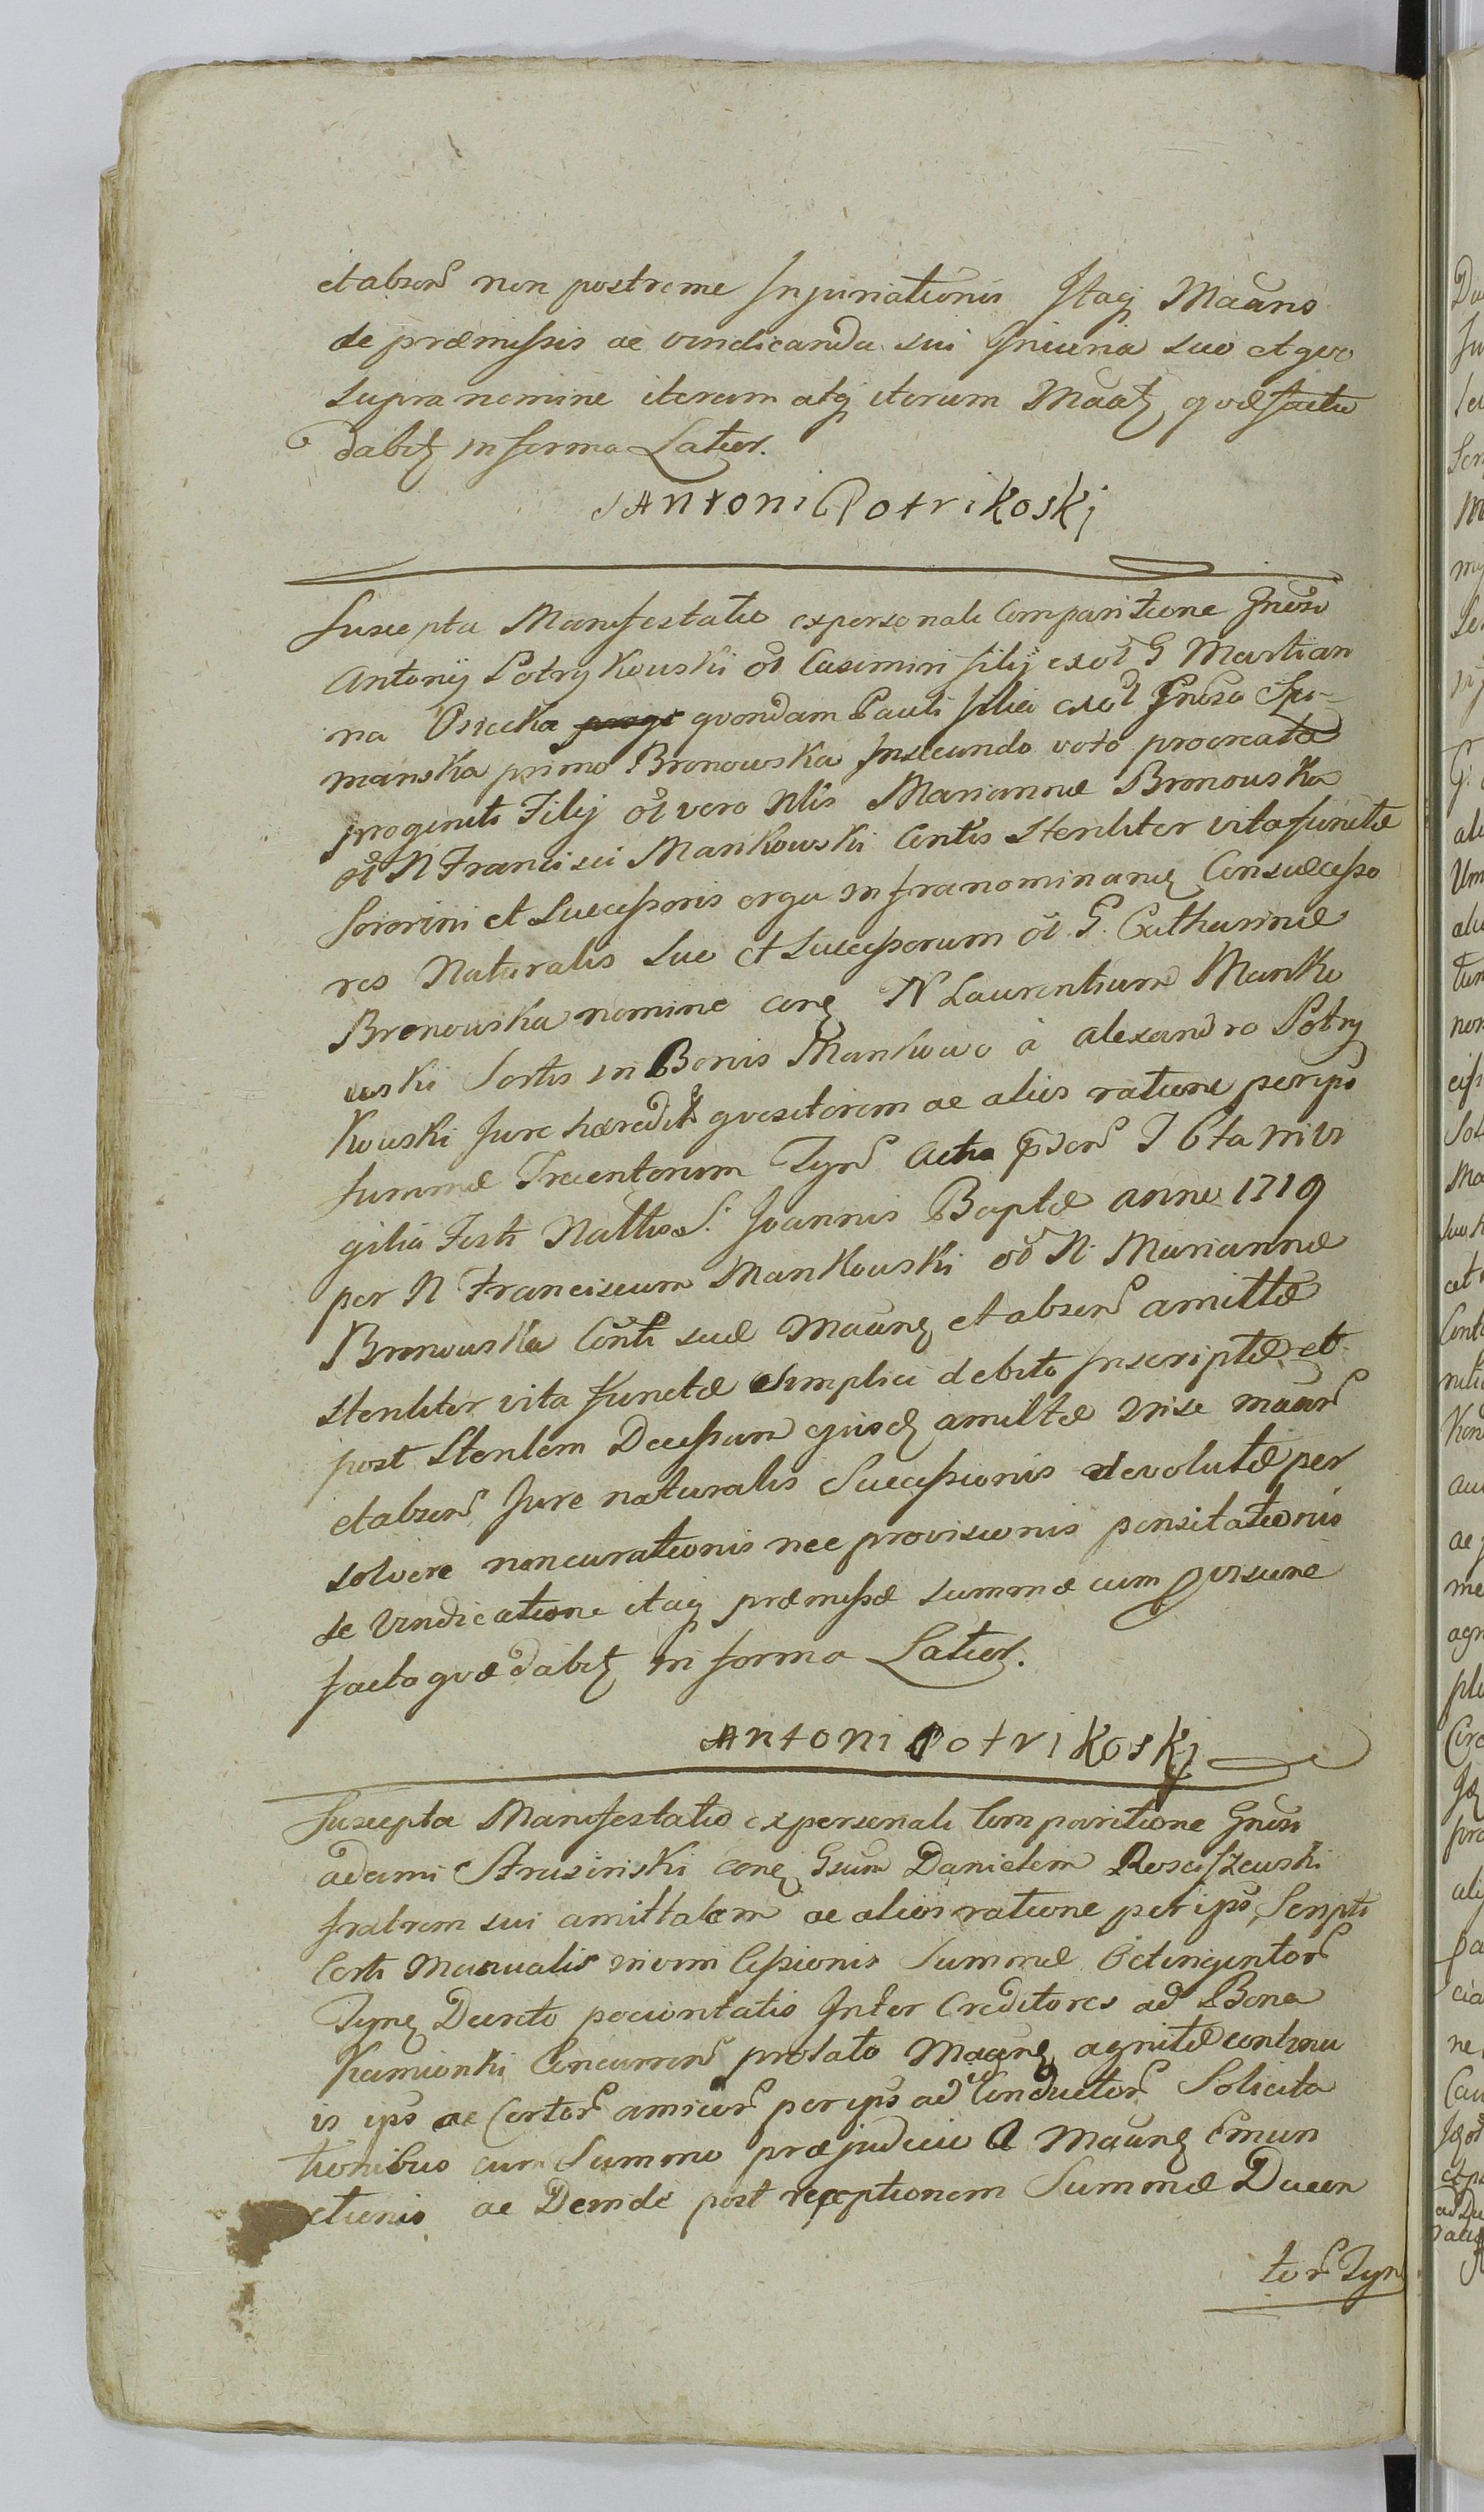 et absen non postreme Injuriationis Itaq Maans
de præmissis ac vindicanda sui Iniuria suo et quo
supra nomine iterum atq iterum Maatz qvæ facto
dabitz in forma Latior.
Antoni Potrikoskj
Suscepta Manifestatio ex personali Comparitione Gnosi
Antonÿ Potrykowski ol Casimiri filÿ ex ol G Martian
na Osiecka qvondam Pauli filia ex ol Gnosa Szy-
manska primo Bronowska In secundo voto procreata
progeniti Filÿ ol vero Nlis Mariannæ Bronowska
ol N Francisci Mankowski Contis Steriliter vita functæ
Sororini et Successoris erga infranominanq Consuccesso
res Naturalis suo et Successorum ol G. Catharinæ
Bronowska nomine conq N Laurentium Manko
wski Sortis in Bonis Mankowo à Alexandro Potry
kowski Jure hæredit qvesitorem ac alios ratione per ips
summæ Trecentorum Tynf Actis pnsen I Cta in vi
gilia Festi Nattis S. Joannis Baptæ anno 1719
per N Franciscum Mankowski ol N. Mariannæ
Bronowska Conti suæ Maanq et absen amittæ
steriliter vita functæ Simplici debito Inscriptæ et
post Sterilem Decessum ejusd amittæ in se maan
et absen Jure naturalis Successionis devolutæ per
solvere non curationis nec provisionis pensitationis
de vindicatione itaq præmissæ summæ cum pvisione
facto qvæ dabitz in forma Latior.
Antoni Potrikoskj
Suscepta Manifestatio ex personali Comparitione Gnosi
Adami Strusinski conq Gsum Danielem Rosciszewski
fratrem sui amittalem ac alios ratione per ips Scripti
Certi Manualis inomi Cessionis Summæ Octingentor
Tynq Decreto pociontatio Inter Creditores ad Bona
Kamionki Concurren prolato Maanq agnitæ continu
is ips ac Certor amicor per ips ad id Conductor Solicita
tionibus cum Summo præjudicio A Maanq Emun
ctionis ac Deinde post receptionem Summæ Ducen
tor Tyn